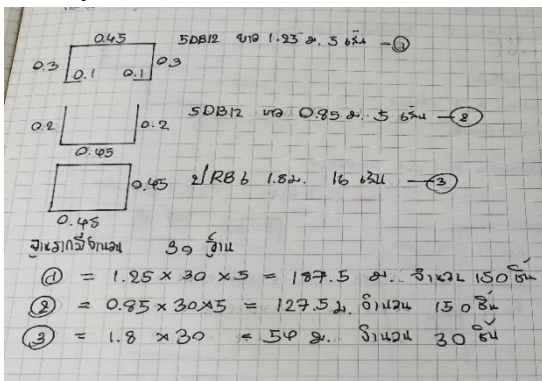 0.45 5DB12 ยาว 1.25 ม. 5 เส้น - ①
0.3 0.1 0.1 0.3
5DB12 ยาว 0.85 ม. 5 เส้น - ②
0.2 0.2
0.45
0.45 ป/RB6 1.8ม. 16 เส้น - ③
0.45
ฐานรากมีจำนวน 30 ฐาน
① = 1.25 x 30 x 5 = 187.5 ม. จำนวน 150 ชิ้น
② = 0.85 x 30 x 5 = 127.5 ม. จำนวน 150 ชิ้น
③ = 1.8 x 30 = 54 ม. จำนวน 30 ชิ้น